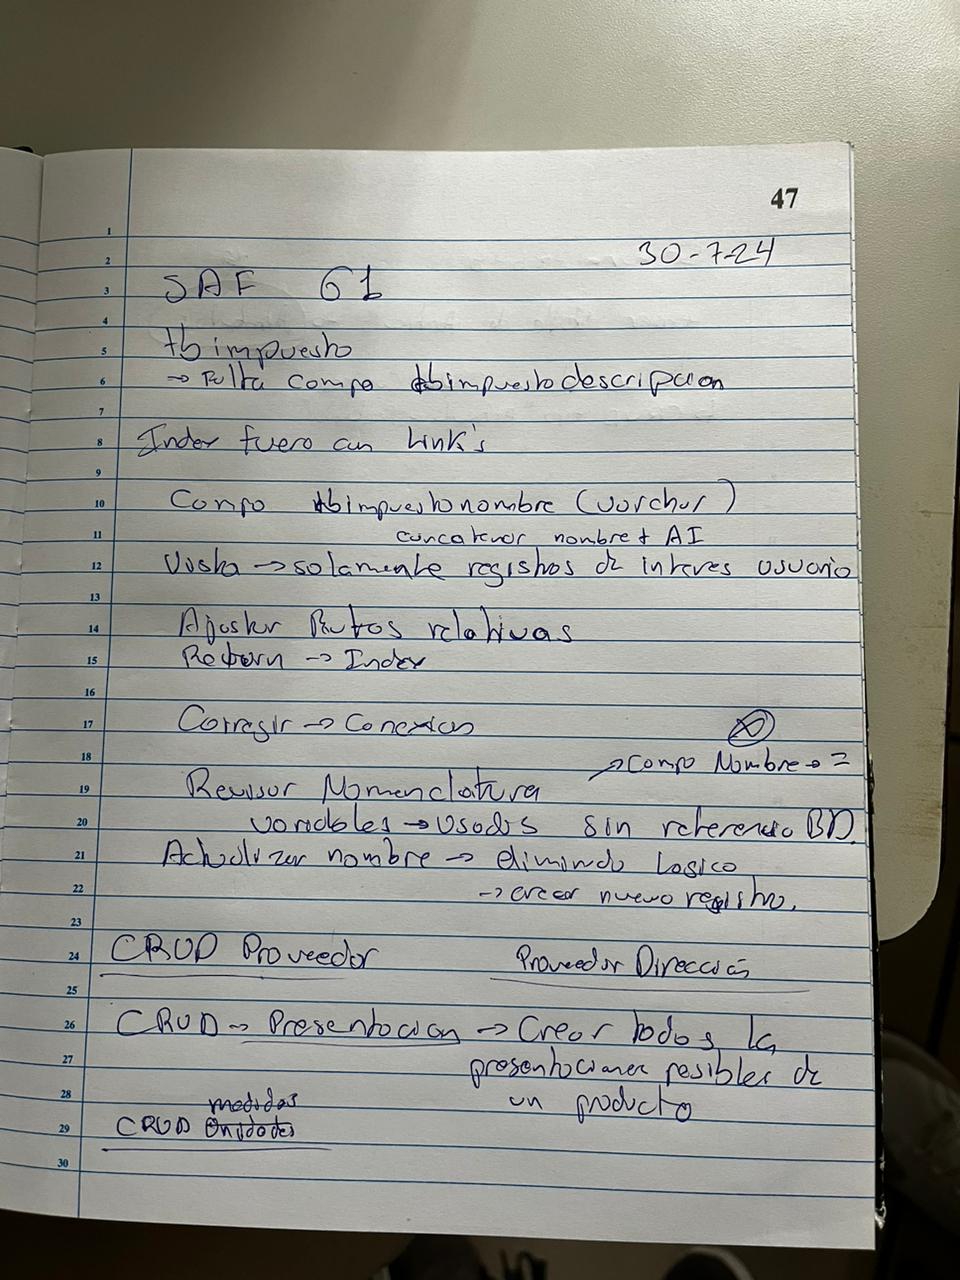 47
1
2 30-7-24
3 SAF G1
4
5 tbimpuesto
6 → Falta campo tbimpuestodescripcion
7
8 Index fuero con Link's
9
10 Campo tbimpuestonombre (varchar)
11 concatenar nombre + AI
12 Vista → solamente registros de interes usuario
13
14 Ajustar Rutas relativas
15 Return → Index
16
17 Corregir → Conexion
18 → Campo Nombre → =
19 Revisar Nomenclatura
20 variables → usados sin referencia BD.
21 Actualizar nombre → eliminado Logico
22 → crear nuevo registro.
23
24 CRUD Proveedor Proveedor Direccion
25
26 CRUD → Presentacion → Crear todos la
27 presentaciones posibles de
28 un producto
medidas
29 CRUD Unidades
30